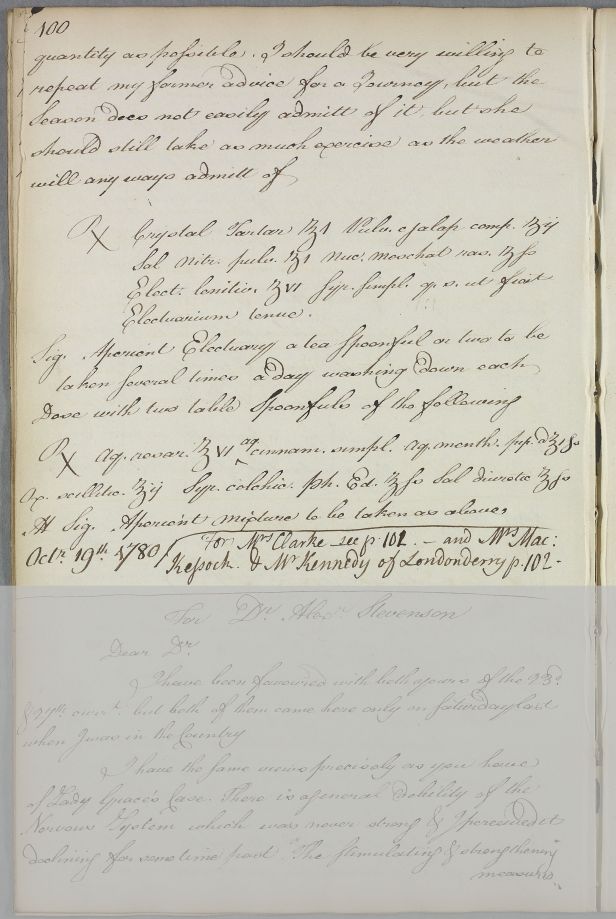 100
quantity as possible. I should be very willing to
repeat my former advice for a Journey, but the
Season does not easily admitt of it, but she
should still take as much exercise as the weather
will any ways admitt of
℞ Crystal Tartar ℥1 Pulv. e jalap comp. ʒij
Sal Nitr. pulv. ʒ1 Nuc. moschat ras. ʒſs
Elect. lenitiv. ℥VI Syr. simpl. q. s. ut fiat
Electuarium tenue.
Sig. Aperient Electuary a tea spoonful or two to be
taken several times a day washing down each
Dose with two table Spoonfuls of the following
℞ Aq. rosar. ℥VI aq cinnam. simpl. aq. menth. pip. ℥1ſs
scillitic. ʒij Syr. colchic. Ph. Ed. ℥ſs Sal diuretic ℥ſs
M Sig. Aperient mixture to be taken as above,
Octr. 19th. 1780 For Mrs Clarke see p. 102. — and Mrs Mac:
Kessock. & Mr Kennedy of Londonderry p. 102 -
For Dr. Alexr. Stevenson
Dear Dr.
I have been favoured with both yours of the 23d.
& 27th. currt. but both of them came here only on Saturday last
when I was in the Country
I have the same views precisely as you have
of Lady Grace's Case. There is a general debility of the
Nervous System which was never strong & I perceived it
declining for some time past. The stimulating & strengthening
measures